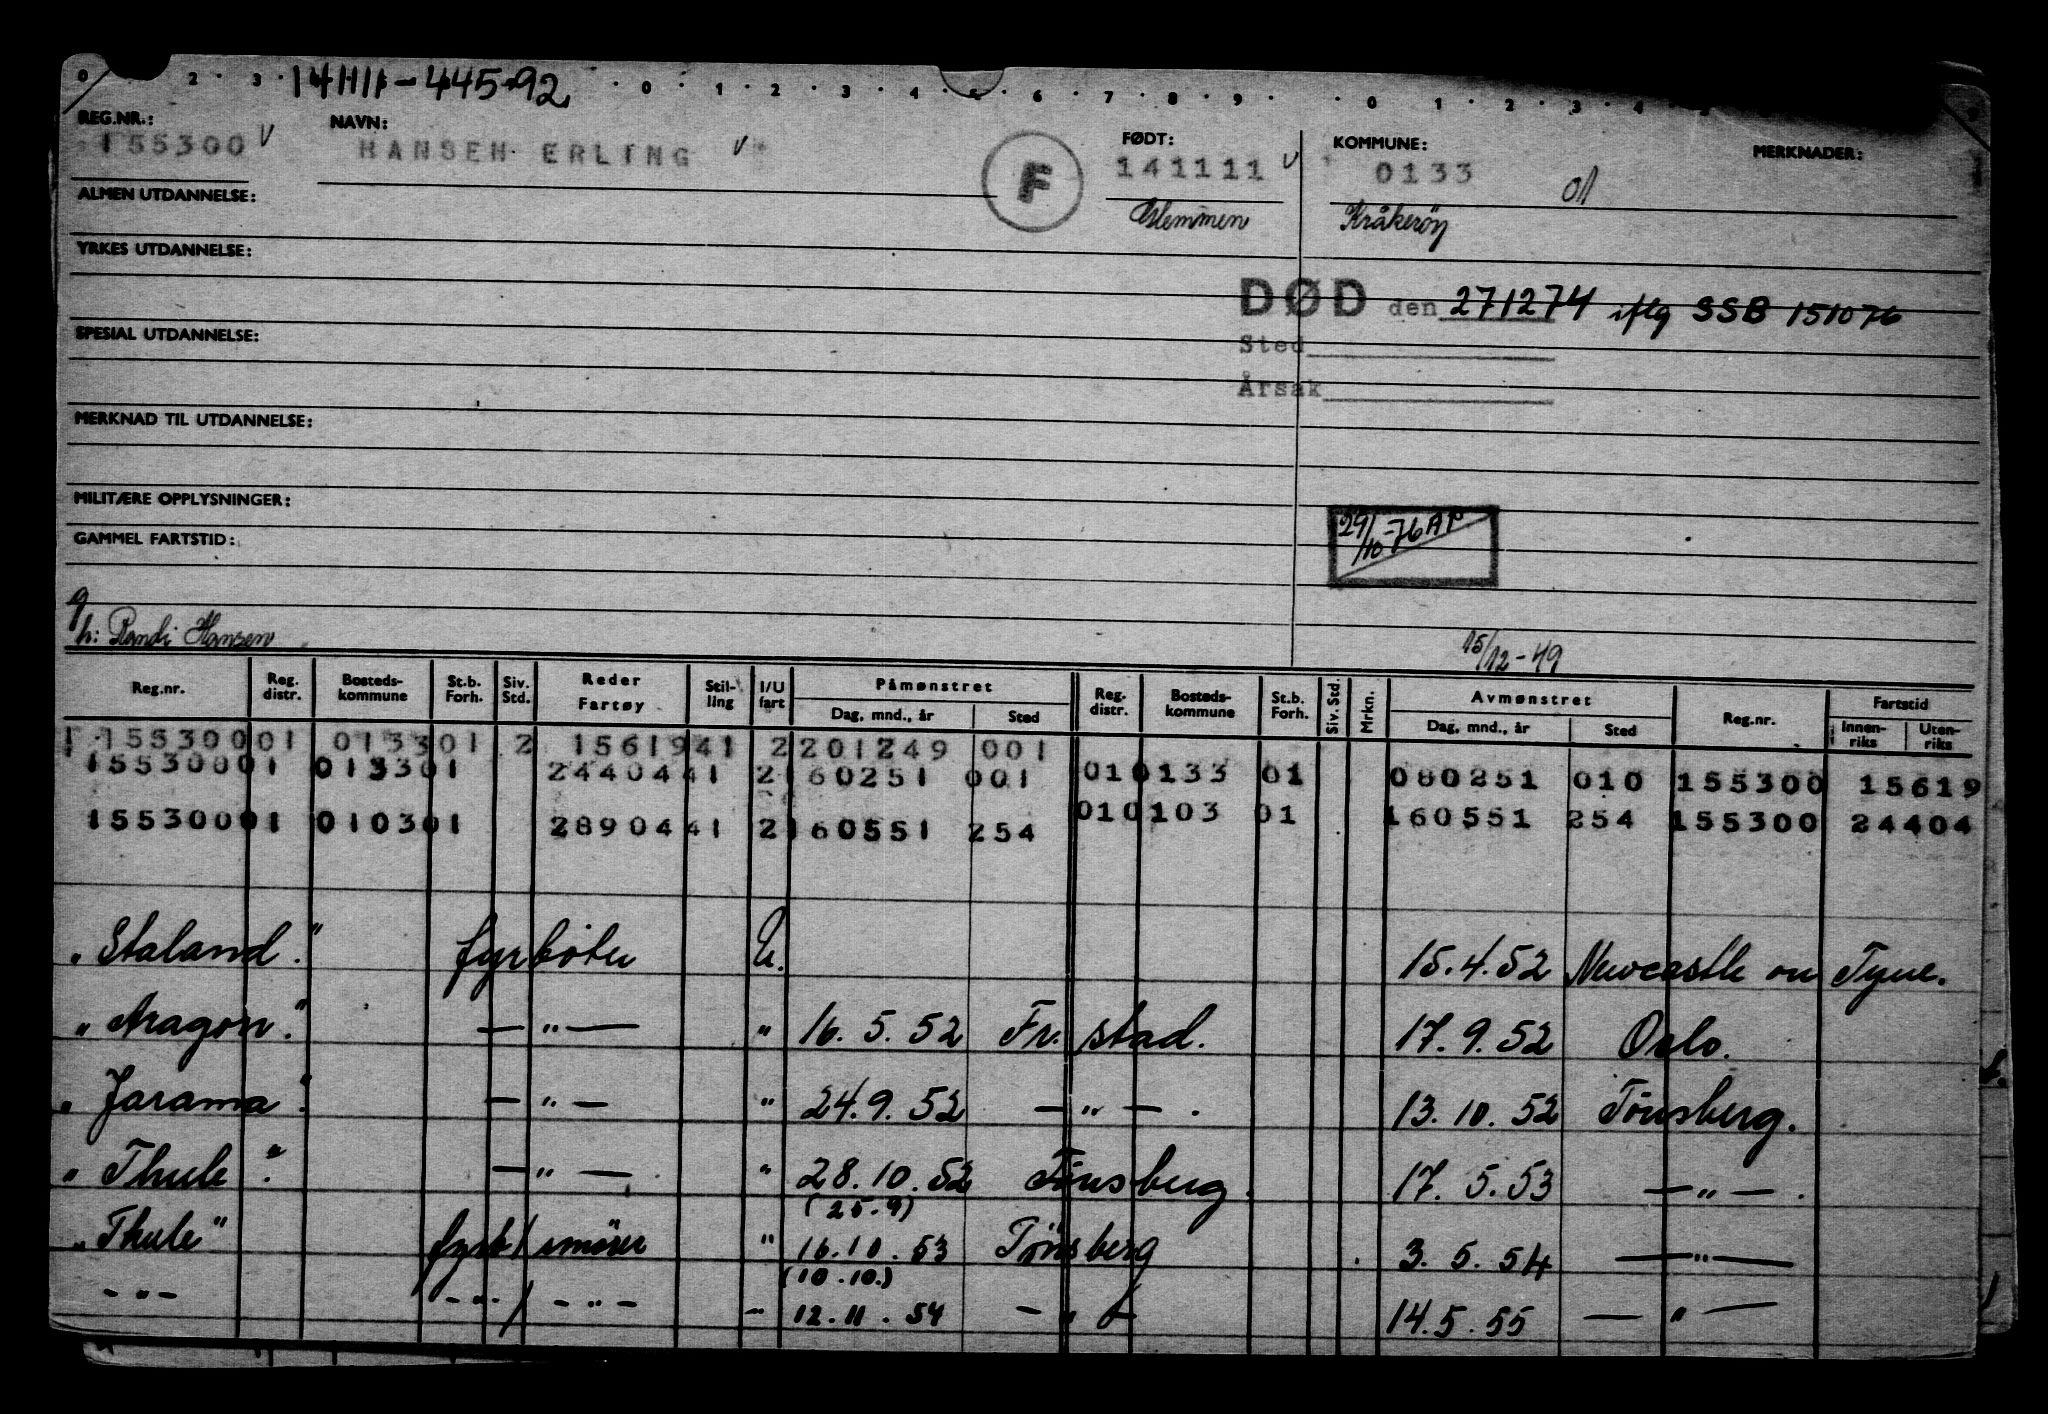 0 2 · 3 · 141111-445-92 · 0 · 1 · 2 · 3 · 4 · 5 · 6 · 7 · 8 · 9 · · 0 · 1 · 2 · 3 · 4
REG.NR.: NAVN: FØDT: KOMMUNE: MERKNADER:
155300 v HANSEN ERLING v F 141111 v 0133 01
Glemmen Kråkeröy
ALMEN UTDANNELSE:
YRKES UTDANNELSE:
DØD den 271274 iflg SSB 151076
SPESIAL UTDANNELSE:
Sted
Årsak
MERKNAD TIL UTDANNELSE:
MILITÆRE OPPLYSNINGER:
29/10-76 AP
GAMMEL FARTSTID:
g/h: Randi Hansen
15/12-49
Reg.nr. Reg. distr. Bosteds-kommune St.b. Forh. Siv. Std. Reder Fartøy Stil-ling I/U fart Påmønstret Dag, mnd., år Sted Reg. distr. Bosteds-kommune St.b. Forh. Siv. Std. Mrkn. Avmønstret Dag, mnd., år Sted Reg.nr. Fartstid Innen-riks Uten-riks
1 15530001 013301 2 1561941 2201249 001
15530001 013301 2440441 2160251 001 010133 01 080251 010 155300 15619
15530001 010301 2890441 2160551 254 010103 01 160551 254 155300 24404
„Staland." fyrbøter U. 15.4.52 Newcastle on Tyne.
„Aragon." — „ — " 16.5.52 Fr.stad. 17.9.52 Oslo.
„Jarama". — „ — " 24.9.52 — „ — . 13.10.52 Tönsberg.
„Thule". — „ — " 28.10.52 Tönsberg. 17.5.53 — „ — .
(25.9)
„Thule" fyrb/smörer " 16.10.53 Tönsberg 3.5.54 — „ —
(10.10.)
- „ - - „ - / - „ - " 12.11.54 — „ — 14.5.55 — „ —